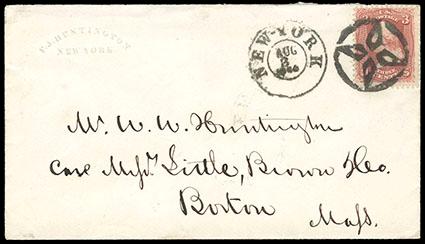 F. J. HUNTINGTON
NEW YORK.
NEW-YORK
AUG
2
3
Mr. W. W. Huntington
Care Messrs. Little, Brown & Co.
Boston
Mass.